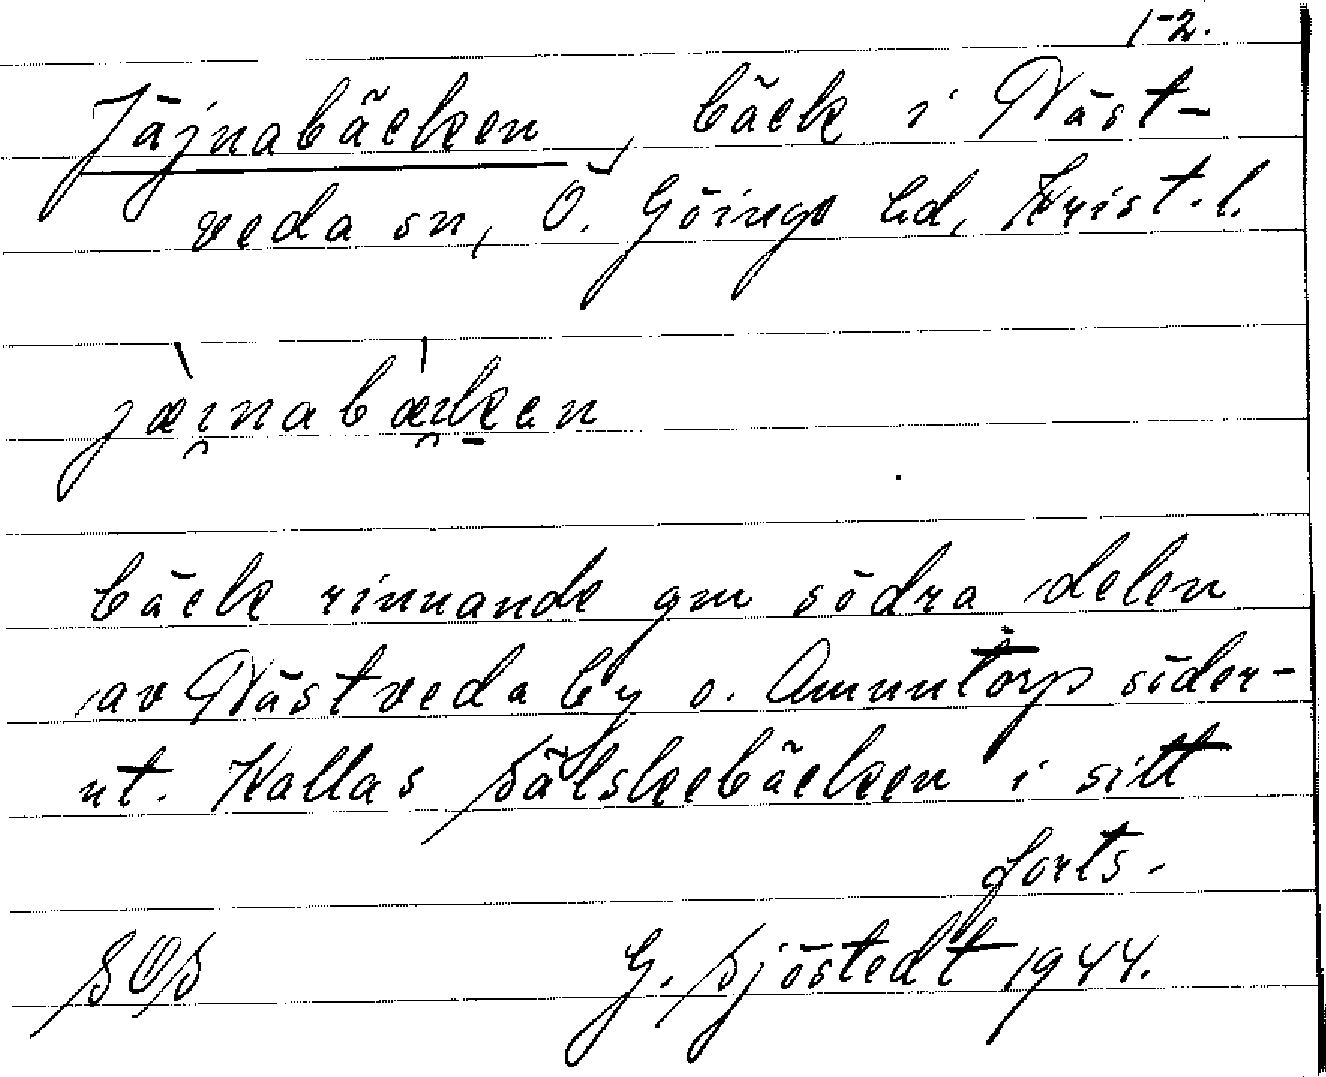 1-2.
Jäjnabäcken, bäck i Näst-
veda sn, Ö. Göinge hd, Krist. l.
jæi̯nabæi̯ken
bäck rinnande gm södra delen
av Nästveda by o. Amuntorp söder-
ut. Kallas Sälskebäcken i sitt
forts.
SOS G. Sjöstedt 1944.